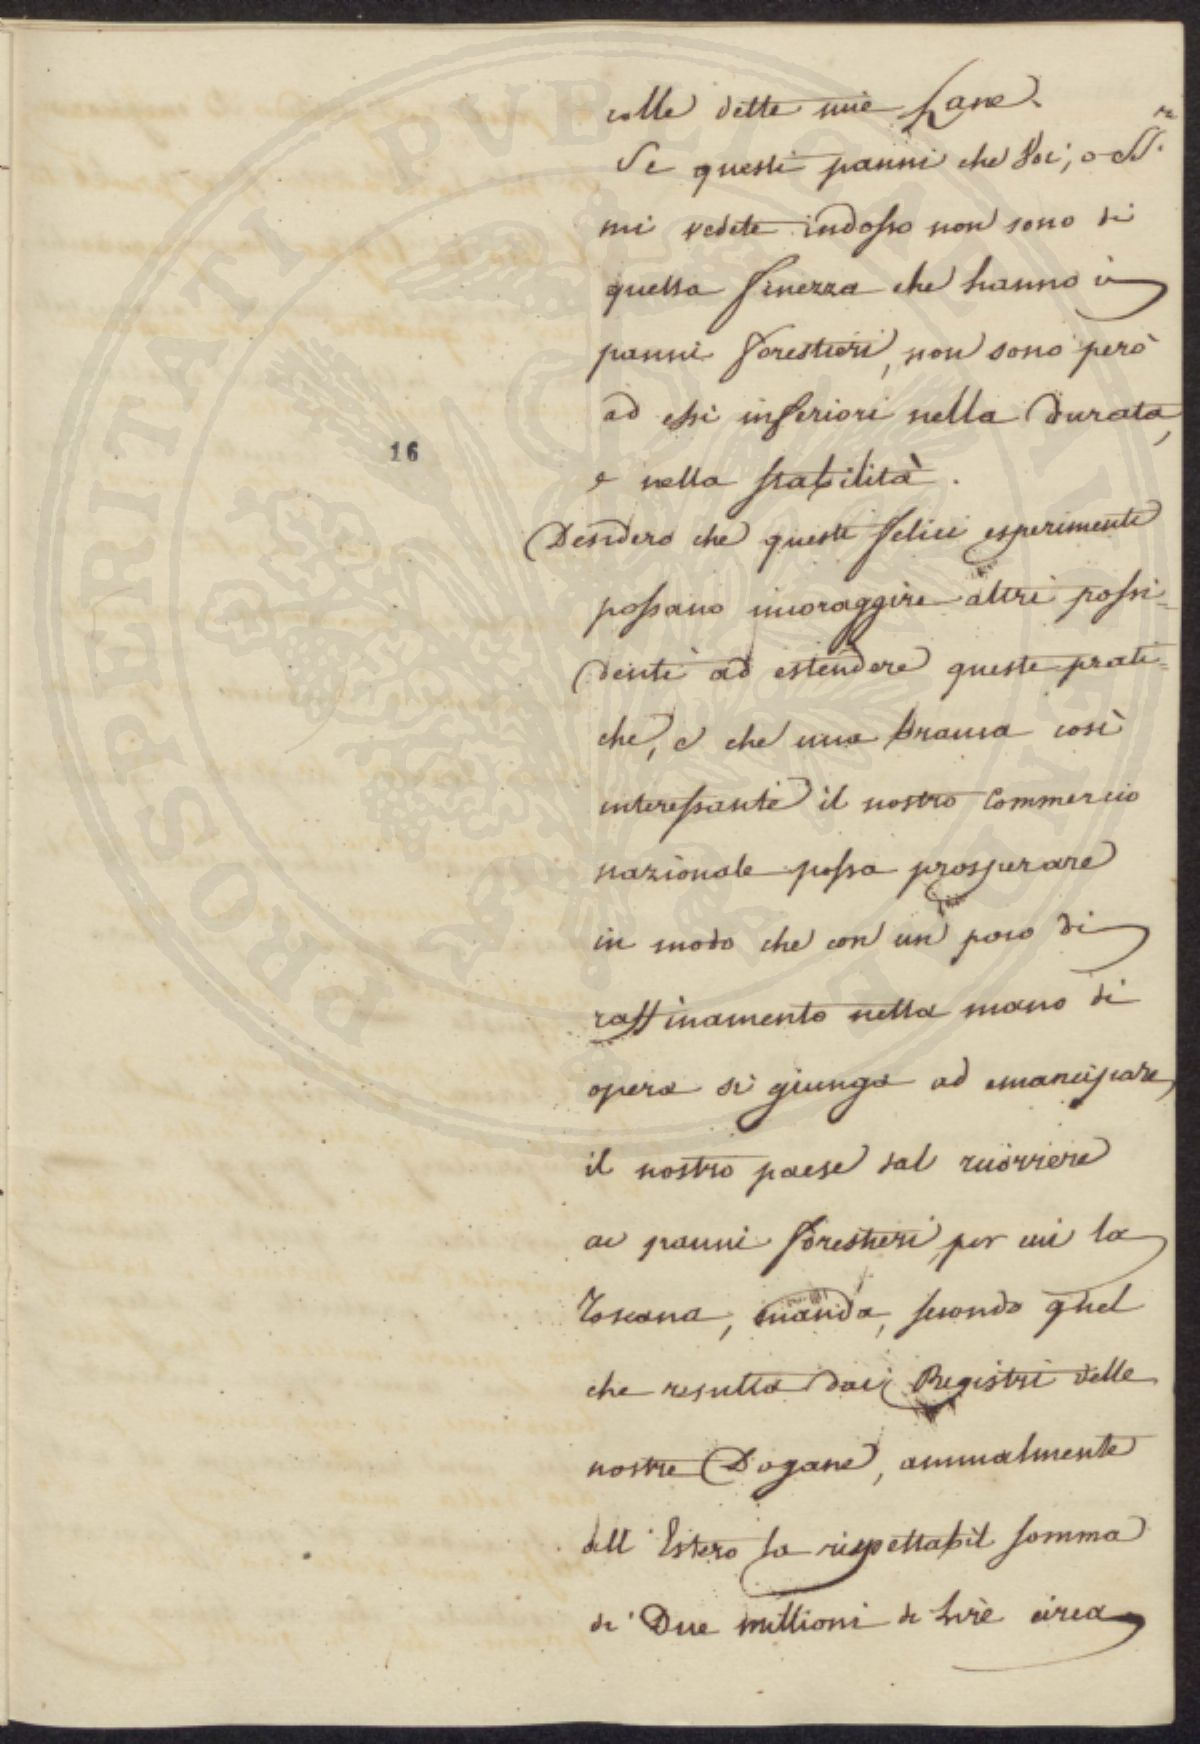 colle dette mie Lane.
Se questi panni che Voi, o SS.ri
mi vedete indosso non sono di
quella finezza che hanno i
panni forestieri, non sono però
ad essi inferiori nella durata,
e nella stabilità.
16
Desidero che questi felici esperimenti
possano incoraggire altri possi=
denti ad estendere queste prati=
che, e che una brama così
interessante il nostro Commercio
nazionale possa prosperare
in modo che con un poco di
raffinamento nella mano di
opera si giunga ad emancipare
il nostro paese dal ricorrere
ai panni forestieri, per cui la
Toscana, manda, secondo quel
che resulta dai Registri delle
nostre Dogane, annualmente
all'Estero la rispettabil somma
di Due millioni di Lire circa
PROSPERITATI PVBLICAE